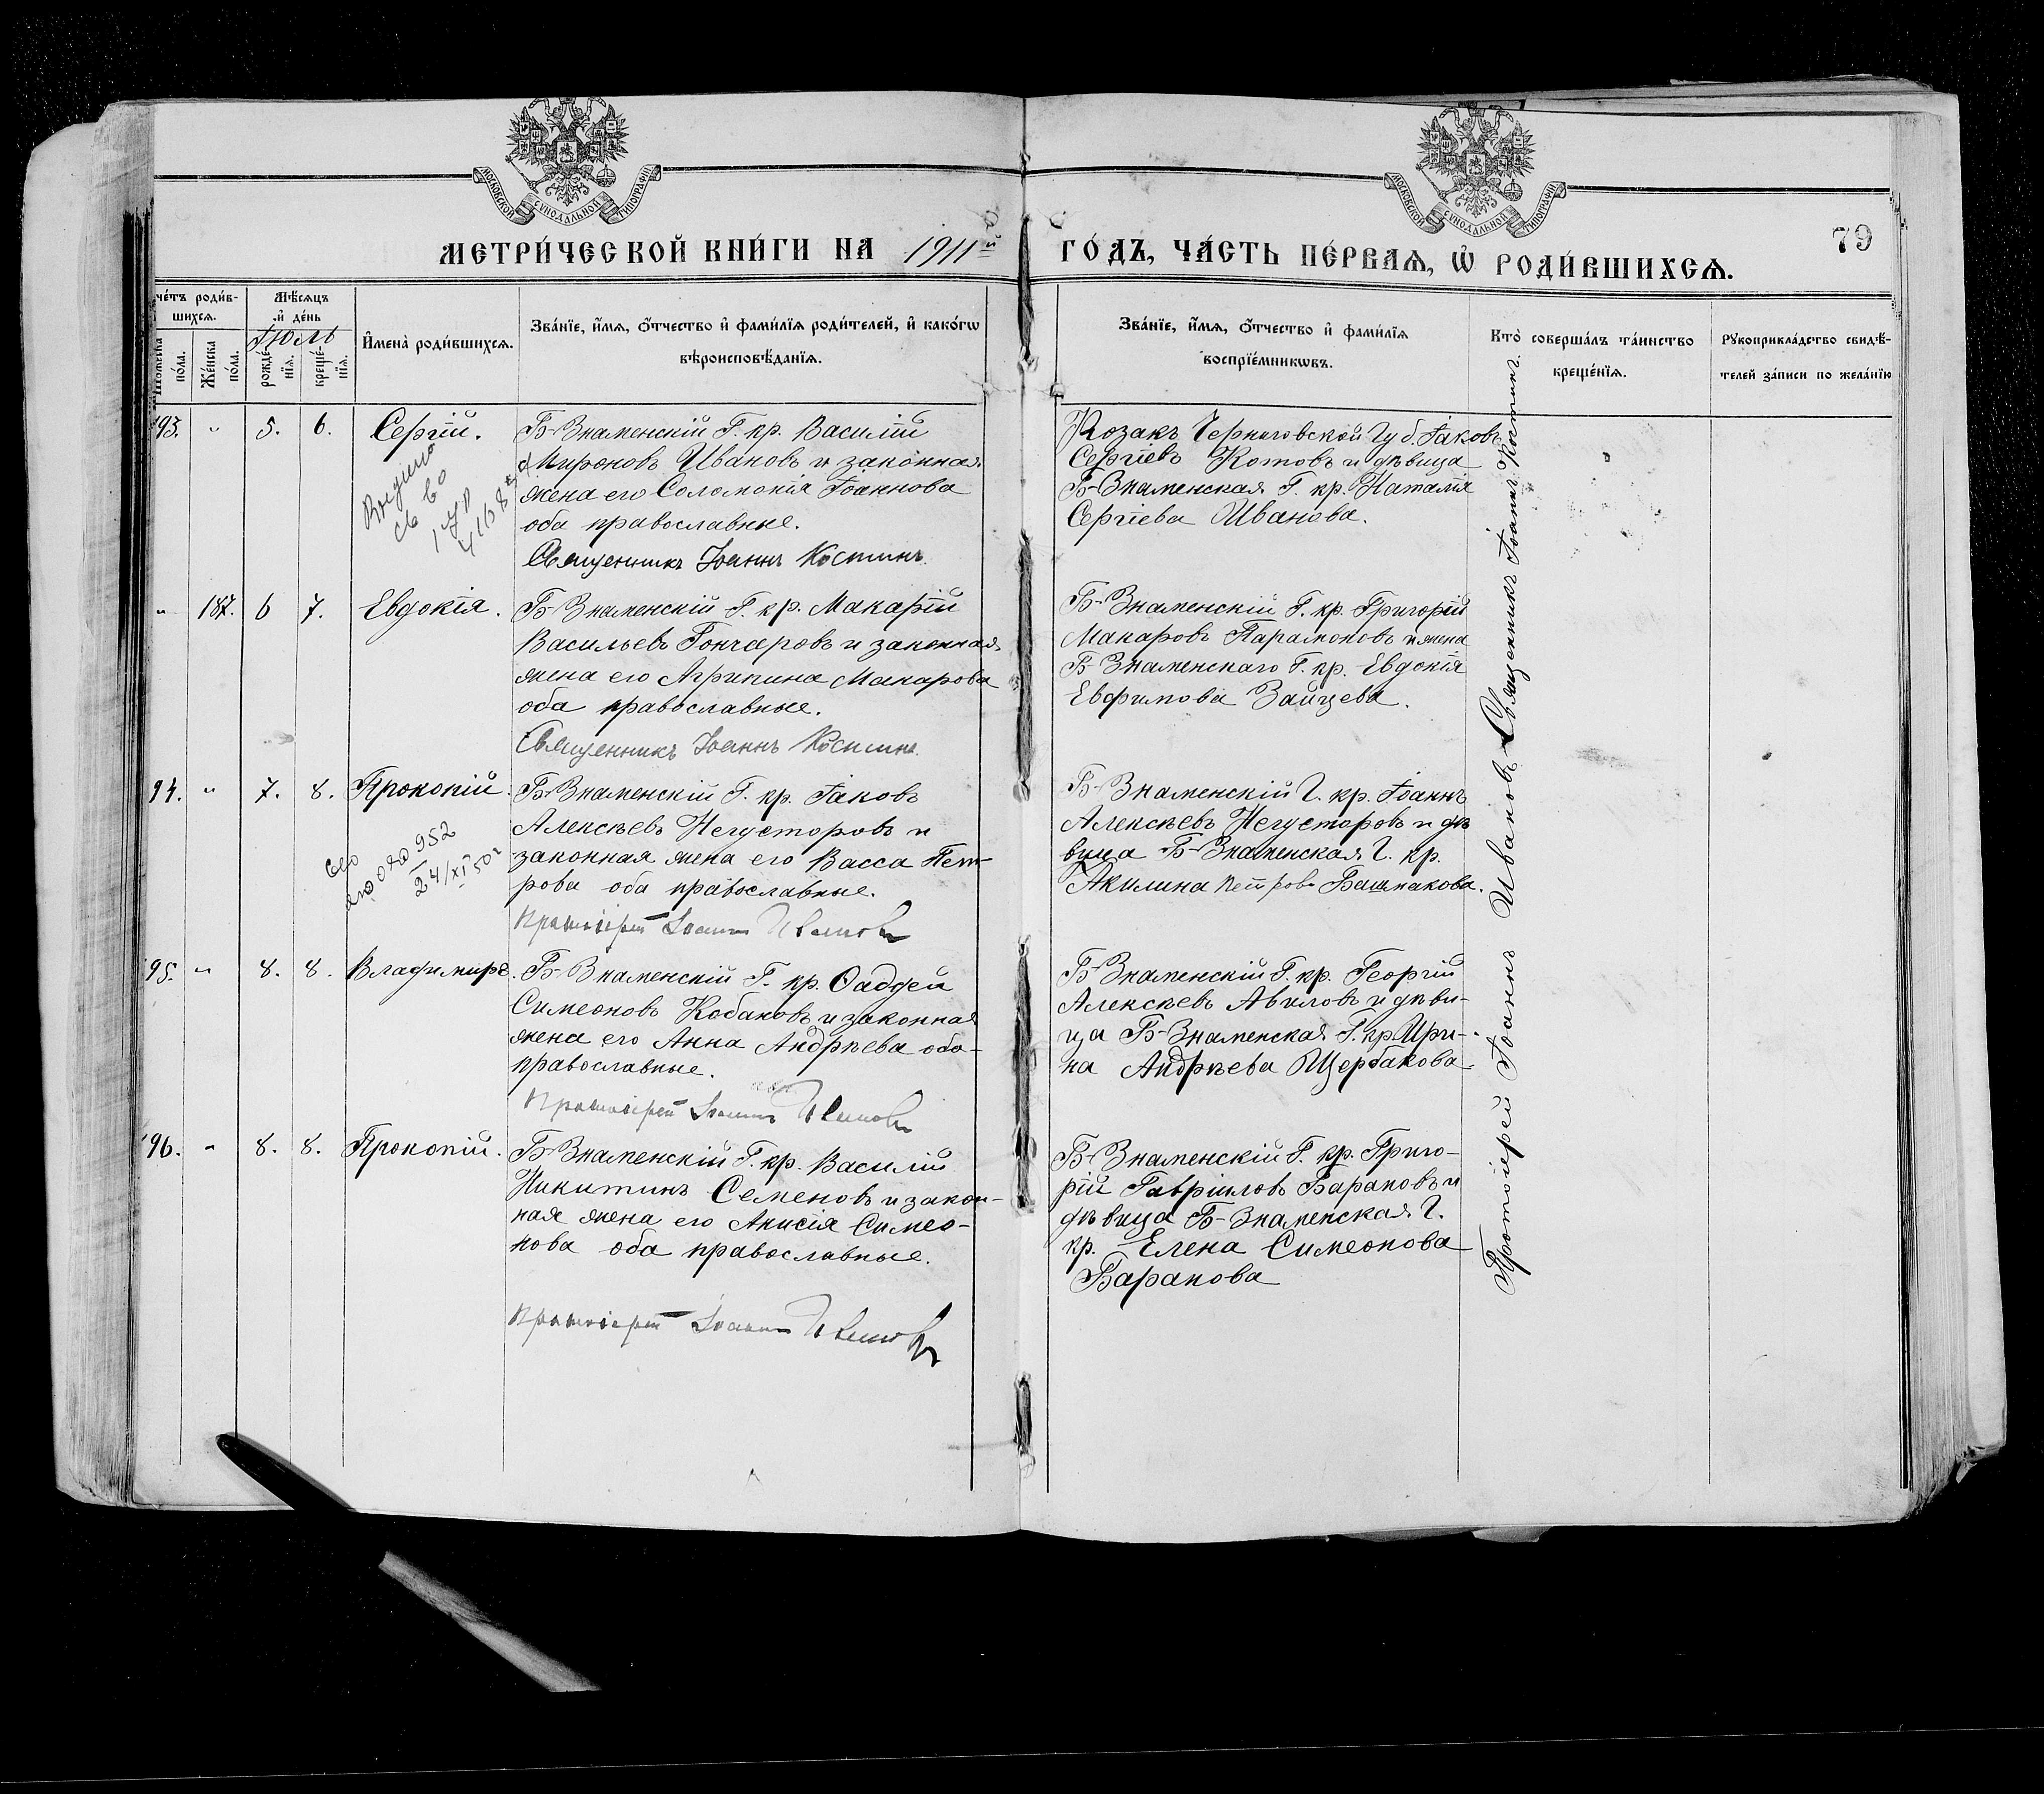 МОСКОВСКОЙ СѴНОДАЛЬНОЙ ТИПОГРАФІИ
МОСКОВСКОЙ СѴНОДАЛЬНОЙ ТИПОГРАФІИ
79
МЕТРИ́ЧЕСКОЙ КНИ́ГИ НА 1911й ГО́ДЪ, ЧА́СТЬ ПЕ́РВАѦ, Ѡ РОДИ́ВШИХСѦ.
че́тъ роди́в-
шихсѧ.
Мѣ́сѧцъ
и҆ де́нь
Іюль
по́ла.
Же́нска
по́ла.
рожде́-
нїѧ.
креще́-
нїѧ.
И҆мена̀ роди́вшихсѧ.
Зва́нїе, и҆́мѧ, ѻ҆́тчество и҆ фами́лїѧ роди́телей, и҆ како́гѡ
вѣроисповѣ́данїѧ.
Зва́нїе, и҆́мѧ, ѻ҆́тчество и҆ фами́лїѧ
воспрїе́мникѡвъ.
Кто̀ соверша́лъ та́инство
креще́нїѧ.
Рꙋкоприкла́дство свидѣ́-
телей за́писи по жела́нїю
193. " 5. 6. Сергій.
Б-Знаменскій Г. кр. Василій
Мироновъ Ивановъ и законная
жена его Соломонія Іоаннова
оба православные.
Священникъ Іоаннъ Костинъ
Козакъ Черниговской Губ. Іаковъ
Сергіевъ Котовъ и дѣвица
Б-Знаменская Г. кр. Наталія
Сергіева Иванова.
" 187. 6 7. Евдокія.
Б-Знаменскій Г. кр. Макарій
Васильевъ Гончаровъ и законная
жена его Агрипина Макарова
оба православные.
Священникъ Іоаннъ Костинъ
Б-Знаменскій Г. кр. Григорій
Макаровъ Парамоновъ и жена
Б-Знаменскаго Г. кр. Евдокія
Евфимова Зайцева.
94. " 7. 8. Прокопій.
952
24/XI 50г
Б-Знаменскій Г. кр. Іаковъ
Алексѣевъ Негусторовъ и
законная жена его Васса Пет-
рова оба православные.
Протоіерей Іоаннъ Ивановъ
Б-Знаменскій Г. кр. Іоаннъ
Алексѣевъ Негусторовъ и дѣ
вица Б-Знаменская Г. кр.
Акилина Петрова Башмакова.
195. " 8. 8. Владимиръ.
Б-Знаменскій Г. кр. Ѳаддей
Симеоновъ Кобаковъ и законная
жена его Анна Андрѣева оба-
православные.
Протоіерей Іоаннъ Ивановъ
Б-Знаменскій Г. кр. Георгій
Алексѣевъ Авиловъ и дѣви-
ца Б-Знаменская Г. кр. Ири-
на Андрѣева Щербакова.
196. " 8. 8. Прокопій.
Б-Знаменскій Г. кр. Василій
Никитинъ Семеновъ и закон-
ная жена его Анисія Симео-
нова оба православные.
Протоіерей Іоаннъ Ивановъ
Б-Знаменскій Г. кр. Григо-
рій Гавріиловъ Барановъ и
дѣвица Б-Знаменская Г.
кр. Елена Симеонова
Баранова
Протоіерей Іоаннъ Ивановъ Священникъ Іоаннъ Костинъ.